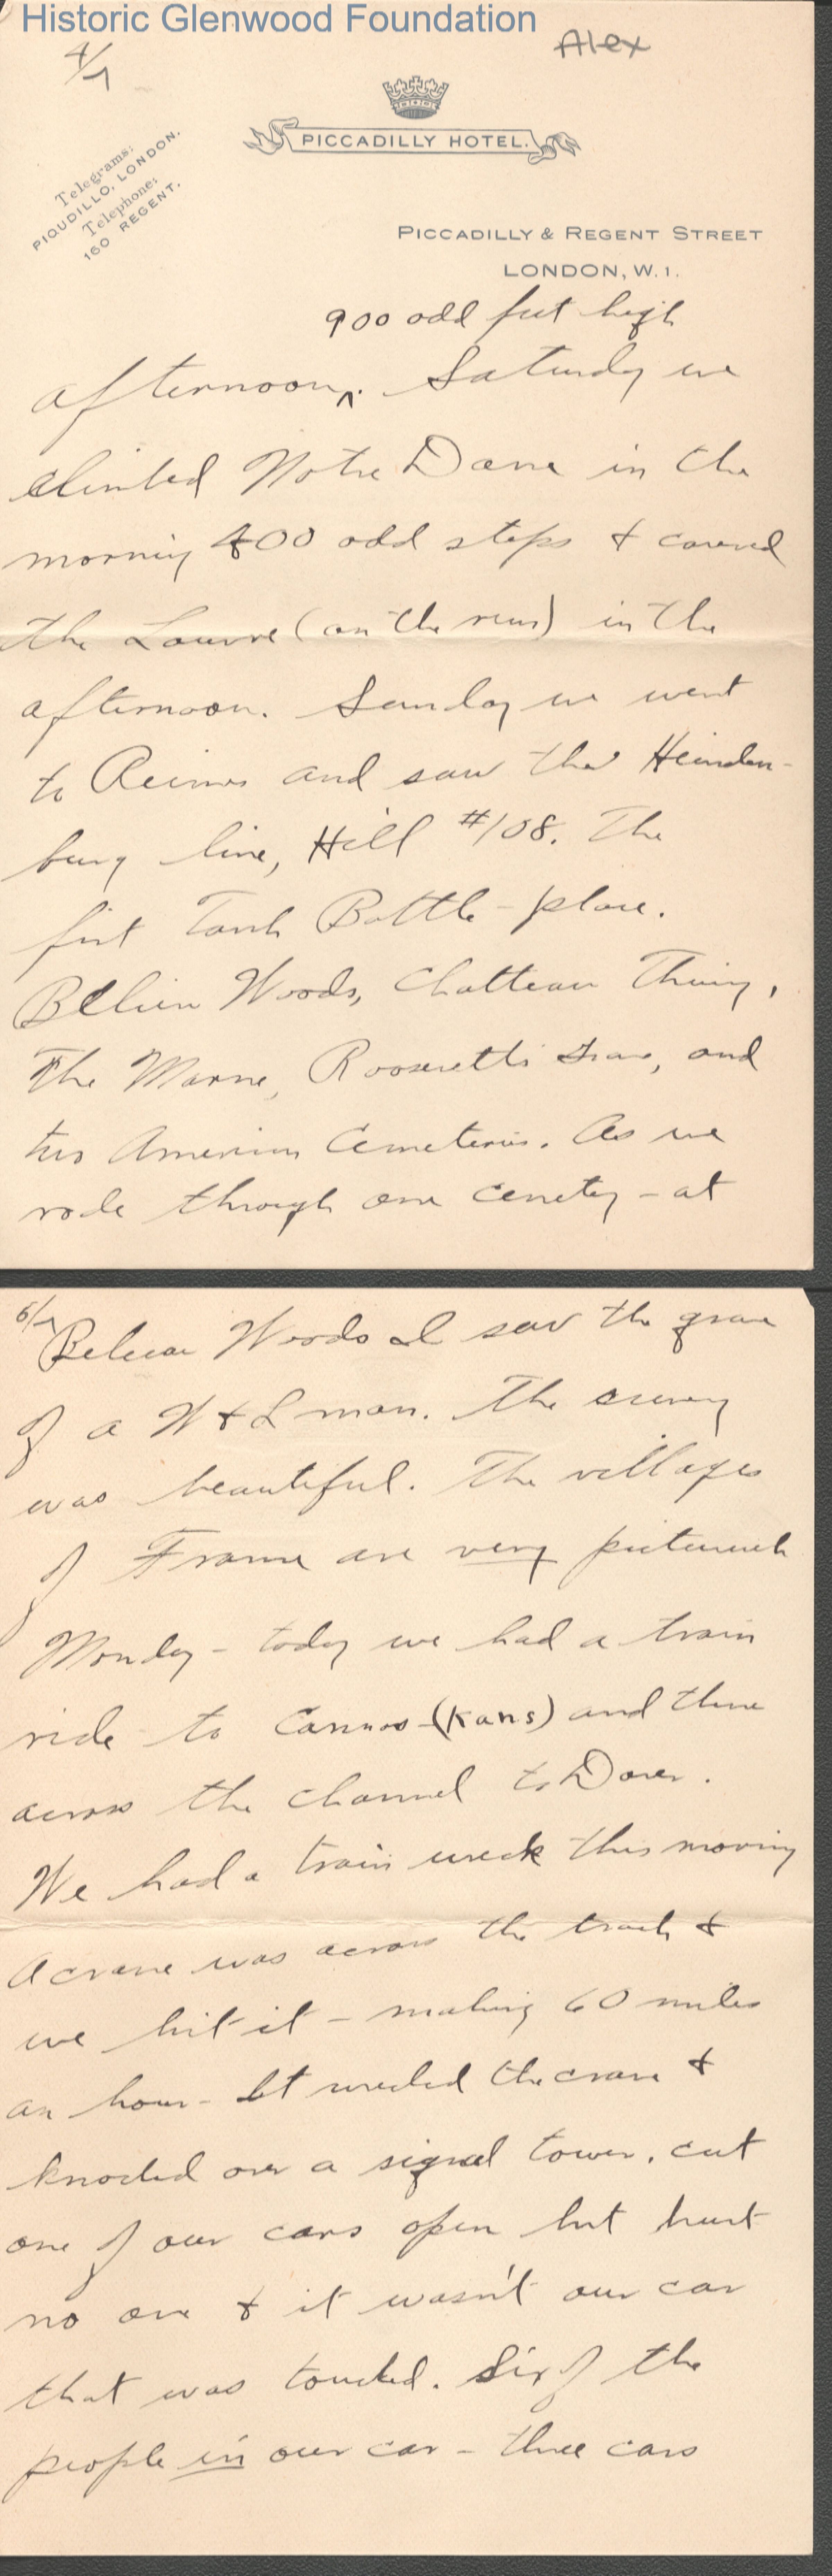 Historic Glenwood Foundation
Alex
4/
Telegrams:
PIQUDILLO, LONDON.
Telephone:
160 REGENT.
PICCADILLY HOTEL.
PICCADILLY & REGENT STREET
LONDON, W.1.
900 odd feet high
afternoon ^. Saturday we
climbed Notre Dame in the
morning 400 odd steps & covered
the Louvre (on the run) in the
afternoon. Sunday we went
to Reims and saw the Heinden-
burg line, Hill #108. The
first Tank Battle-place.
Belleau Woods, Chatteau Thierry,
The Marne, Roosevelt's Grave, and
two American Cemeteries. As we
rode through one cemetery - at
5/
Beleau Woods I saw the grave
of a W & L man. The scenery
was beautiful. The villages
of France are very picturesque
Monday - today we had a train
ride to (Kans) and then
across the channel to Dover.
We had a train wreck this morning
A crane was across the track &
we hit it - making 60 miles
an hour - It wrecked the crane &
knocked over a signal tower, cut
one of our cars open but hurt
no one & it wasn't our car
that was touched. Six of the
people in our car - three cars